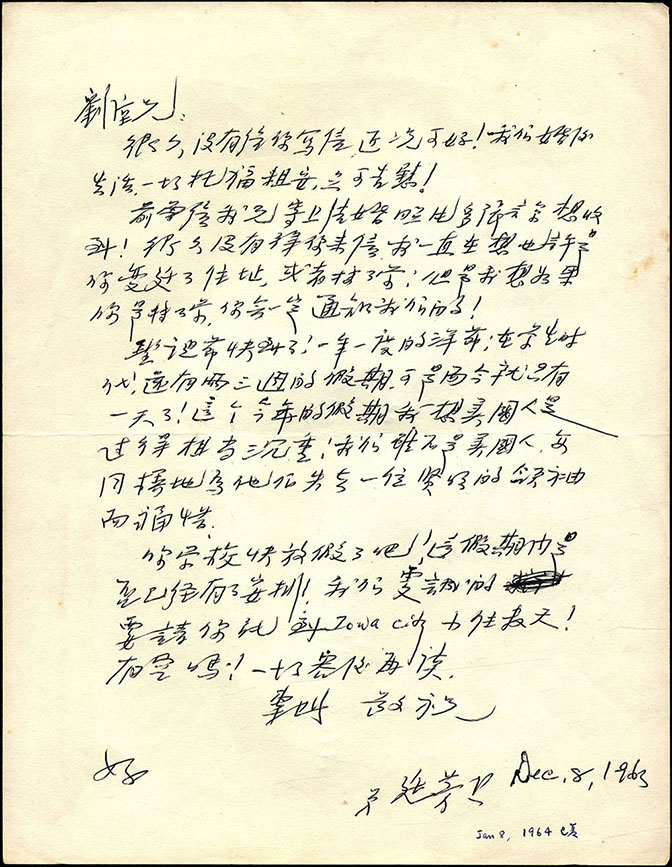 劉堂兄:
很久沒有給你寫信,近況可好!我們婚後
生活,一切托福粗安,立可告慰!
前寄信和況等上結婚照出多張
到!很久沒有得你來信,我一直在想也許是
你變更了住址,或者轉了學;但是我想如果
你是轉了學,你會一定通知我們的!
聖誕節快到了!一年一度的洋節;在學生時
代,還有兩三週的假期可是而今就只有
一天了!這个今年的假期我想美國人是
過得相當沉重!我們雖不是美國人,
同樣地為他們失去一位賢明的領袖
而痛惜.
你学校快放假了吧!這假期內是
否已經有了安排!我們要誠的
要請你到Iowa City 小住数天!
有空嗎!一切容後再談.
敬祝
好
弟 延芳上 Dec. 8, 1963
Jan 8, 1964